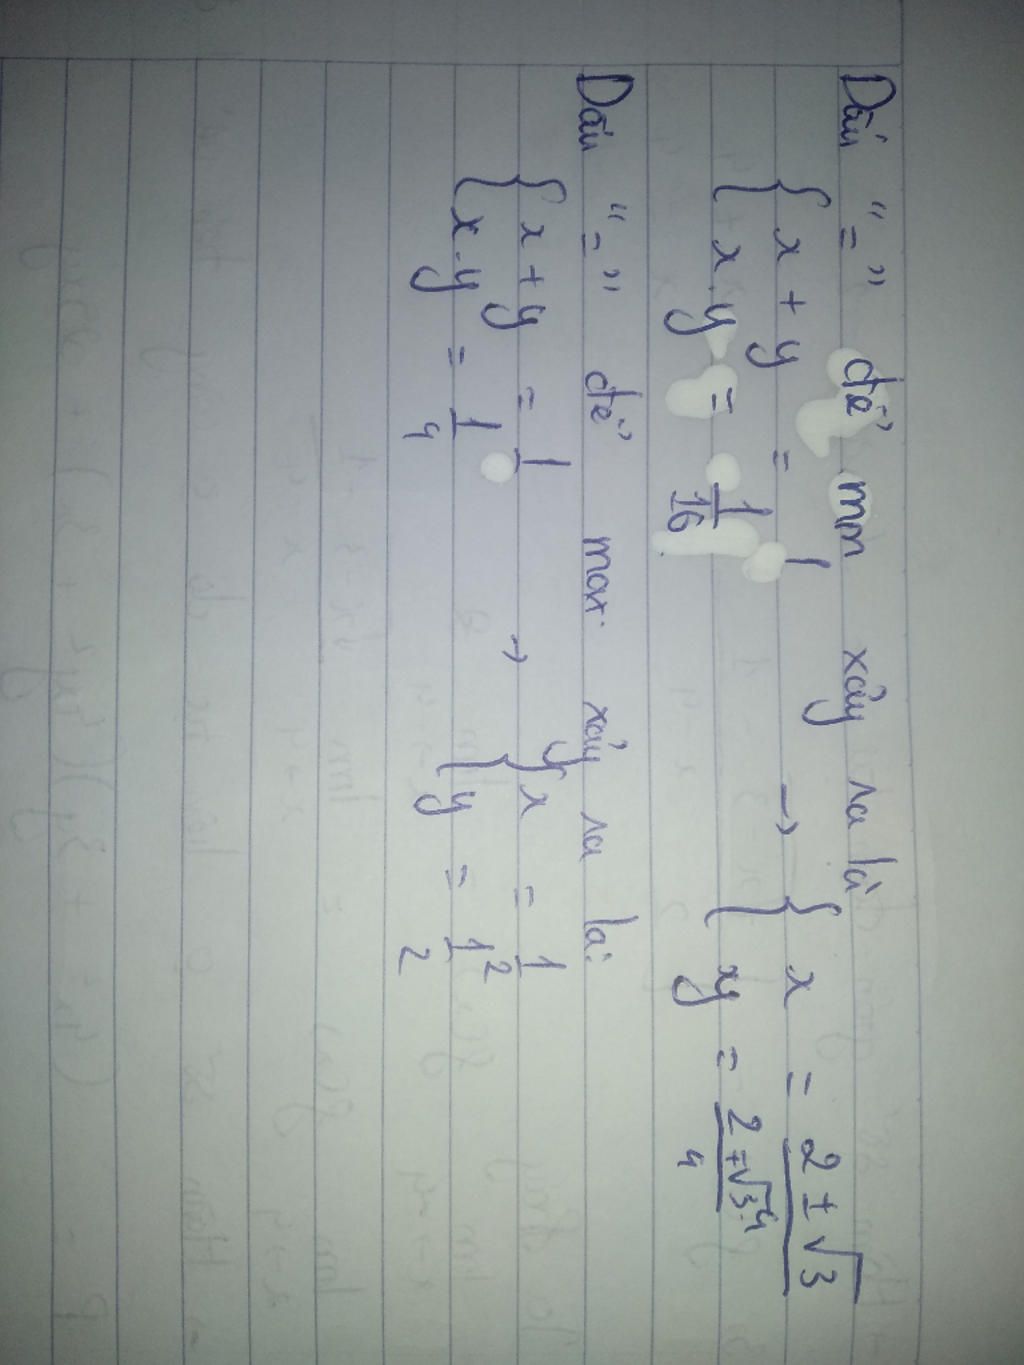 Dấu "=" để min xảy ra là
{ x + y = 1 → { x = 2 ± √3
{ x.y = 1/16 { xy = 2 ∓ √3 / 4
Dấu "=" để max xảy ra là:
{ x + y = 1 → { x = 1/2
{ x.y = 1/4 { y = 1/2